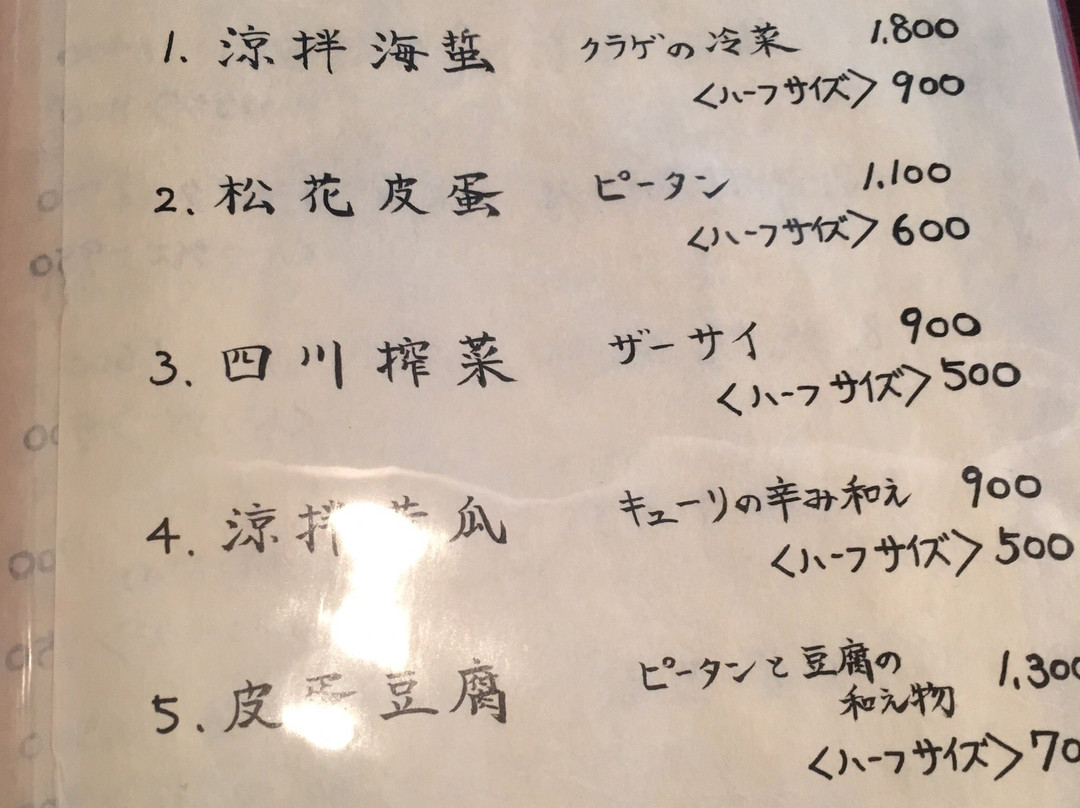 1. 涼拌海蜇 クラゲの冷菜 1.800
<ハーフサイズ> 900
2. 松花皮蛋 ピータン 1.100
<ハーフサイズ> 600
3. 四川搾菜 ザーサイ 900
<ハーフサイズ> 500
4. 涼拌 瓜 キューリの辛み和え 900
<ハーフサイズ> 500
5. 皮蛋豆腐 ピータンと豆腐の 1,300
和え物
<ハーフサイズ> 70